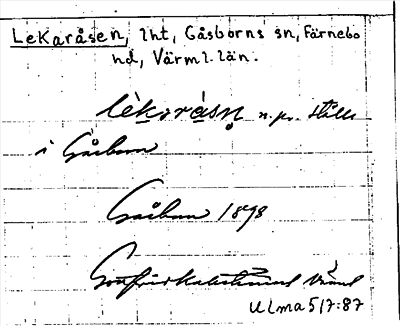 Lekaråsen, lht, Gåsborns sn, Färnebo
hd, Värml. län.
lèkaràsn n. pr. ställe
i Gåsborn
Gåsborn 1898
Ulma 517:87